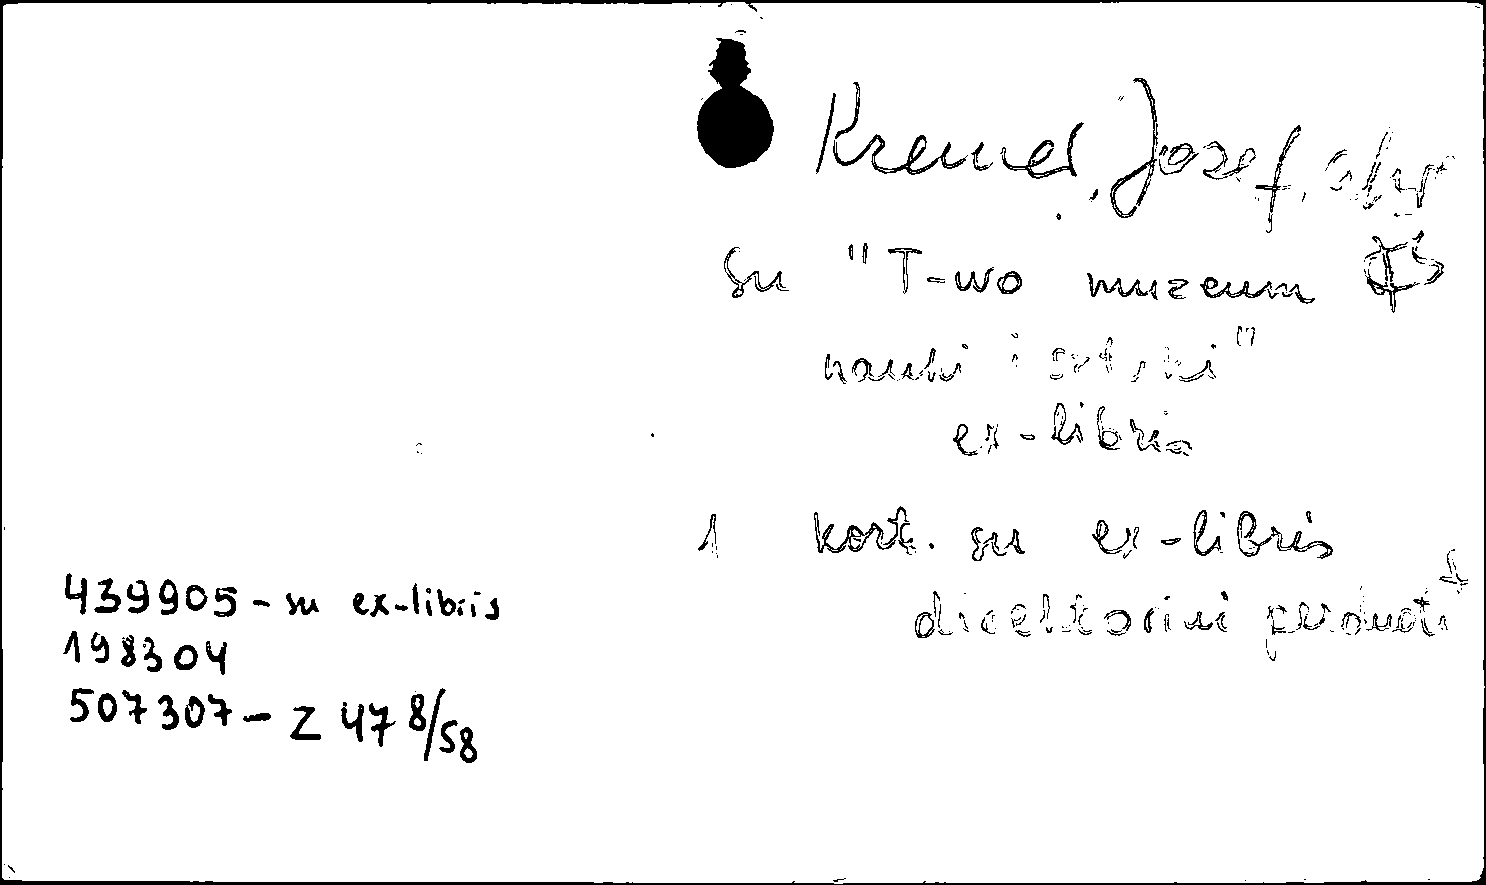 Kremer, Józef,
su "T-wo muzeum
nauki i sztuki"
ex-libris
1 kort. su ex-libris
direktoriui perduota
439905 - su ex-libris
198304
507307 - Z 47 8/58